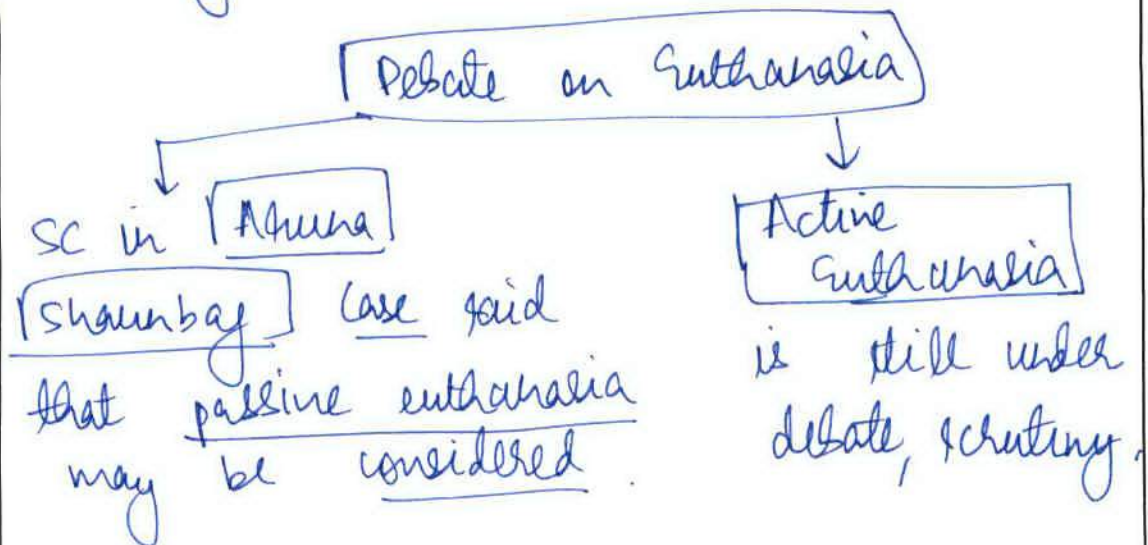 Debate on Euthanasia
SC in Aruna
Shaunbag case said
that passive euthanasia
may be considered.
Active
Euthanasia
is still under
debate, scrutiny.